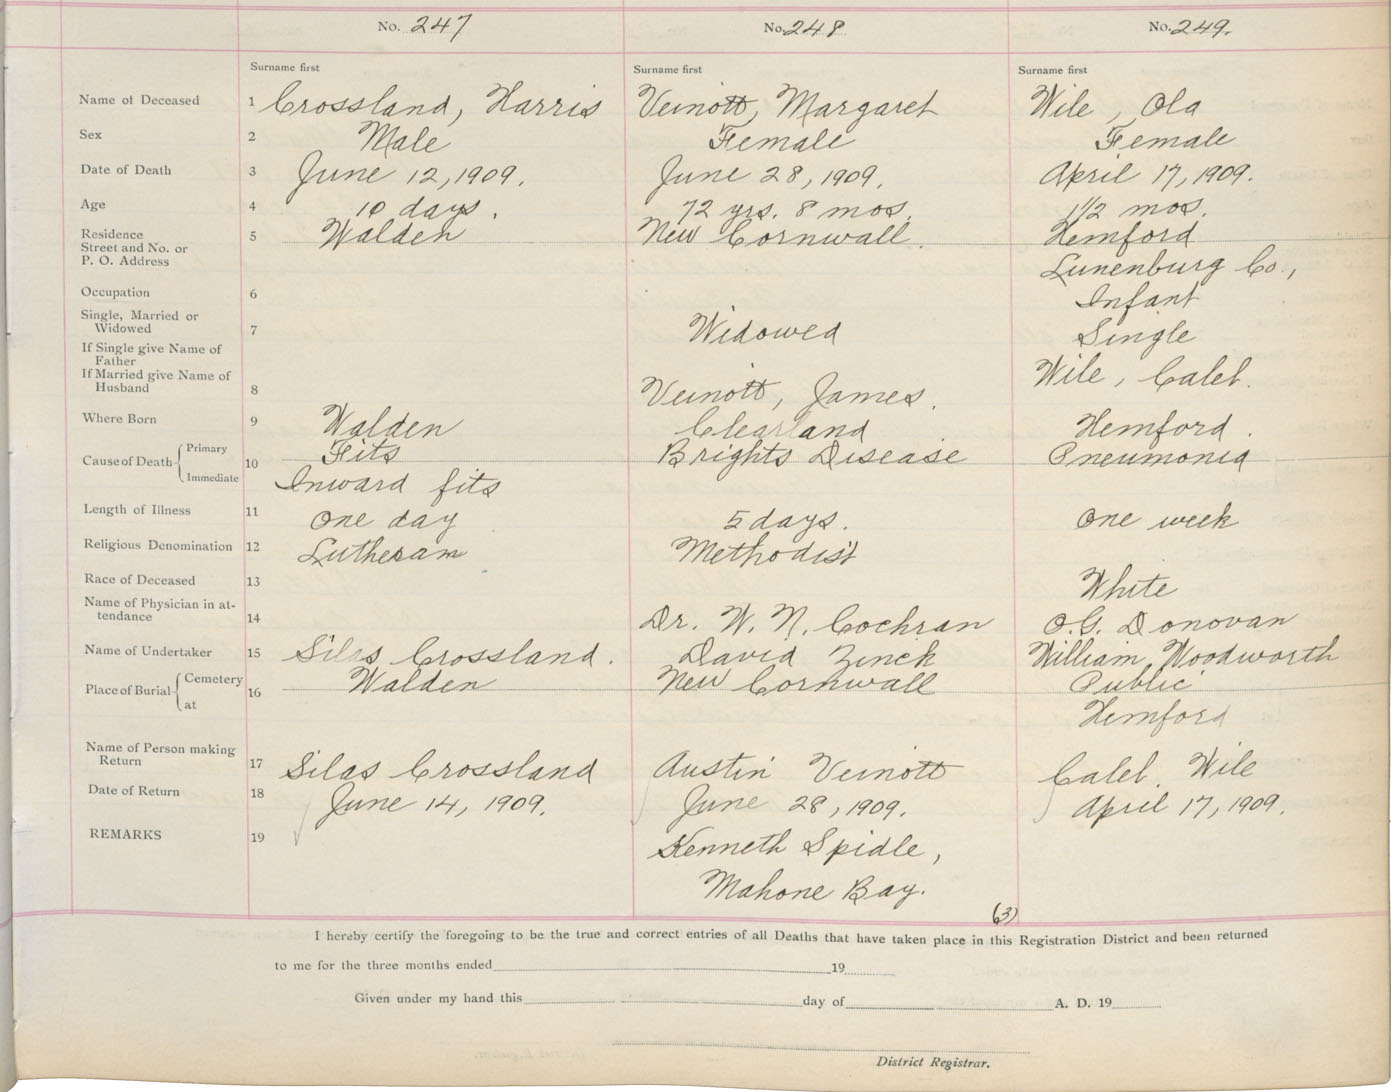 No. 247 No. 248 No. 249.
Surname first Surname first Surname first
Name of Deceased 1 Crossland, Harris Veinott, Margaret Wile, Ola
Sex 2 Male Female Female
Date of Death 3 June 12, 1909. June 28, 1909. April 17, 1909.
Age 4 10 days. 72 yrs. 8 mos. 1 1/2 mos.
Residence 5 Walden New Cornwall. Hemford
Street and No. or
P. O. Address Lunenburg Co.,
Occupation 6 Infant
Single, Married or
Widowed 7 Widowed Single
If Single give Name of
Father
If Married give Name of Wile, Caleb.
Husband 8 Veinott, James.
Where Born 9 Walden Clearland Hemford.
Cause of Death { Primary 10 Fits Brights Disease Pneumonia
Immediate Inward fits
Length of Illness 11 One day 5 days. One week
Religious Denomination 12 Lutheran Methodist
Race of Deceased 13 White
Name of Physician in at-
tendance 14 Dr. W. N. Cochran O.G. Donovan
Name of Undertaker 15 Silas Crossland. David Zinck William Woodworth
Place of Burial { Cemetery 16 Walden New Cornwall Public
at Hemford
Name of Person making
Return 17 Silas Crossland Austin Veinott Caleb. Wile
Date of Return 18 June 14, 1909. June 28, 1909. April 17, 1909.
REMARKS 19 Kenneth Spidle,
Mahone Bay.
(3)
I hereby certify the foregoing to be the true and correct entries of all Deaths that have taken place in this Registration District and been returned
to me for the three months ended 19
Given under my hand this day of A. D. 19
District Registrar.